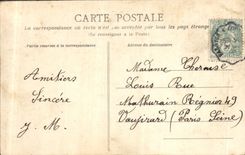 CARTE POSTALE
La correspondance au recto n'est pas acceptée par tous les pays étrangers
(Se renseigner à la Poste)
Partie réservée à la correspondance
Adresse du destinataire
Amitiés
Sincère
J. M.
Madame
Louis Rue
Mathurain Régnier 49
Vaugirard (Paris Seine)